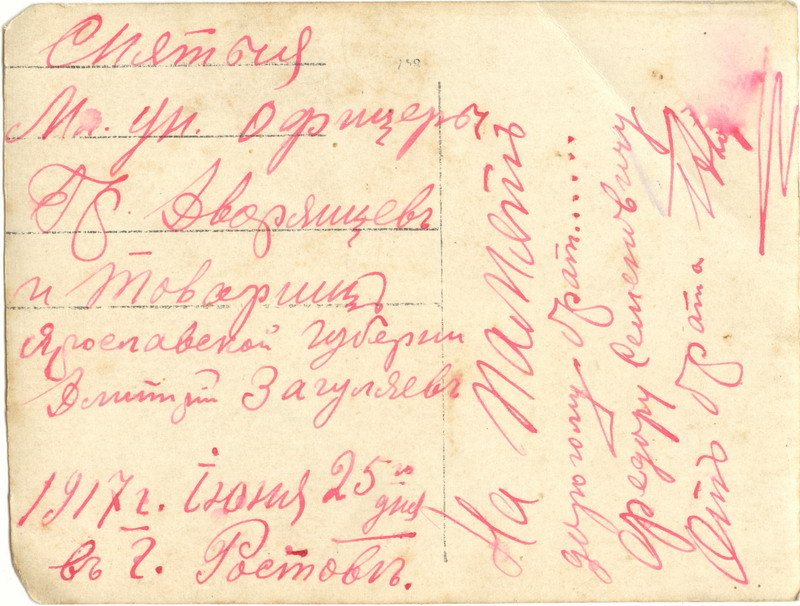 Снятыя
Мл. Ун. Офицеры
Гр. Дворянцевъ
и Товарищъ
Ярославской Губернии
Дмитрий Загуляевъ
1917 г. Iюня 25 го
дня
въ г. Ростовъ.
На Память
дорогому брат......
Федору Семеновичу
Отъ брата